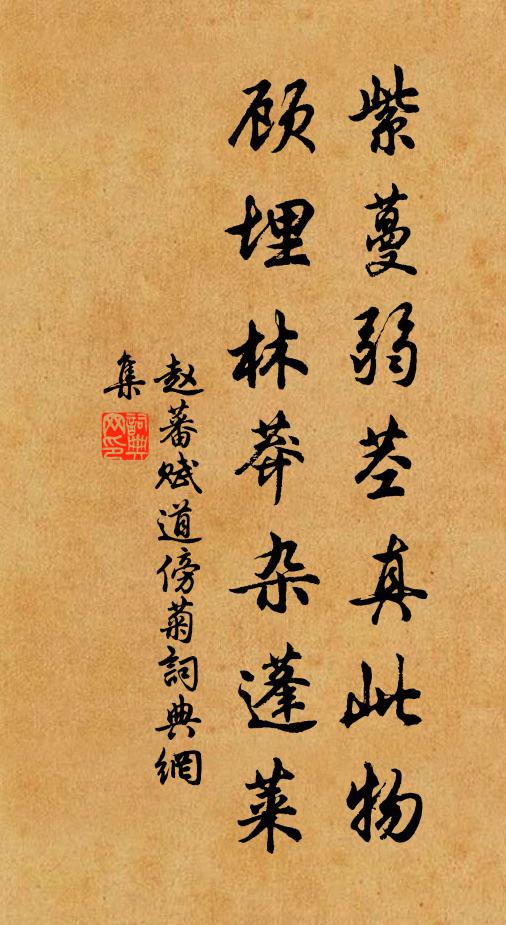 紫蔓弱茎真此物
顾埋林莽杂蓬莱
赵蕃赋道傍菊詞典網
集
詞典
网印